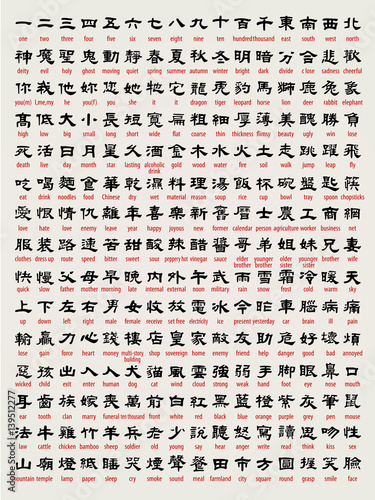 一 二 三 四 五 六 七 八 九 十 百 千 東 南 西 北
one two three four five six seven eight nine ten hundred thousand east south west north
神 魔 聖 鬼 動 靜 春 夏 秋 冬 明 暗 分 合 悲 歡
deity evil holy ghost moving quiet spring summer autumn winter bright dark divide close sadness cheerful
你 我 他 您 妳 她 牠 它 龍 虎 豹 馬 獅 鹿 兔 象
you(m) I,me,my he you you(f) she it it dragon tiger leopard horse lion deer rabbit elephant
高 低 大 小 長 短 寬 扁 粗 細 厚 薄 美 醜 勝 負
high low big small long short wide flat coarse thin thickness flimsy beauty ugly win lose
死 活 日 月 星 久 酒 金 木 水 火 土 走 跳 躍 飛
death live day month star lasting alcoholic drink gold wood water fire soil walk jump leap fly
吃 喝 麵 食 華 乾 濕 料 理 湯 粥 杯 碗 盤 匙 筷
eat drink noodles food Chinese dry wet material reason soup rice cup bowl tray spoon chopsticks
愛 恨 情 仇 離 年 喜 樂 新 舊 曆 士 農 工 商 網
love hate love enemy leave year happy joyous new former calendar person agriculture worker business net
服 裝 路 速 苦 甜 酸 辣 醋 醬 哥 弟 姐 妹 兄 妻
clothes dress up route speed bitter sweet sour peppery hot vinegar sauce elder brother younger brother elder sister younger sister brother wife
快 慢 父 母 早 晚 內 外 午 武 雨 雪 霜 冷 暖 天
quick slow father mother morning late internal external noon military rain snow frost cold warm sky
上 下 左 右 男 女 收 放 電 冰 今 昨 車 腦 病 痛
up down left right male female receive set free electricity ice present yesterday car brain ill pain
輸 贏 力 心 錢 樓 店 皇 家 敵 友 助 危 好 壞 煩
lose gain force heart money multi-story building shop sovereign home enemy friend help danger good bad annoyed
惡 孩 出 入 人 犬 貓 風 雲 強 弱 手 腳 眼 鼻 口
wicked child exit enter human dog cat wind cloud strong weak hand foot eye nose mouth
耳 齒 族 嫁 喪 萬 前 白 紅 黑 藍 橙 紫 灰 筆 鼠
ear tooth clan marry funeral ten thousand front white red black blue orange purple grey pen mouse
法 牛 雞 竹 羊 兵 老 少 說 聽 怒 寫 讀 思 吻 性
law cattle chicken bamboo sheep soldier old young say hear anger write read think kiss sex
山 廟 燈 紙 睡 哭 煙 聲 餐 田 市 方 圓 抓 笑 臉
mountain temple lamp paper sleep cry smoke sound meal farmland city square round grasp smile face